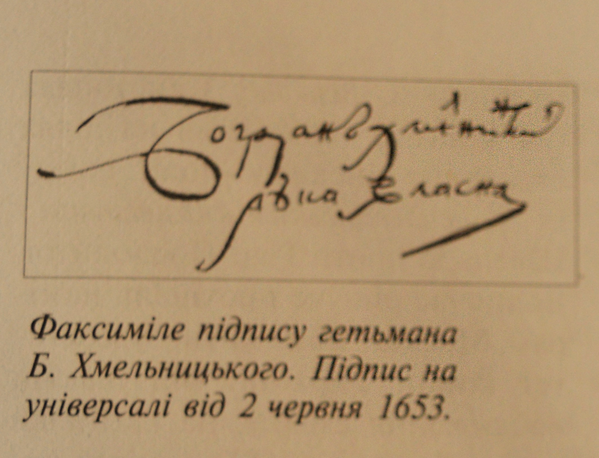 Богданъ Хмелнѣцкий
рꙋка власна
Факсиміле підпису гетьмана
Б. Хмельницького. Підпис на
універсалі від 2 червня 1653.